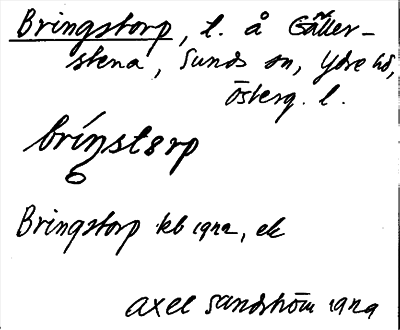 Bringstorp, l. å Gäller-
stena, Sunds sn, Ydre hd,
Österg. l.
bríŋstɵrp
Bringstorp kb 1912, ek
Axel Sandström 1929